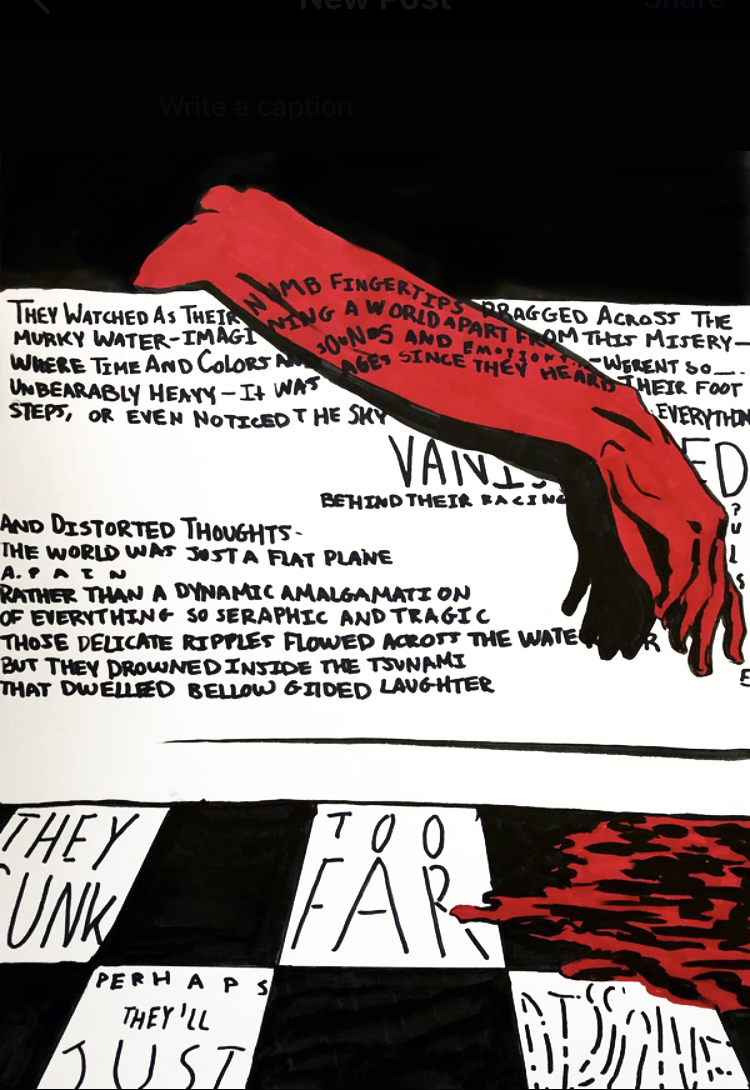 New Post
Share
Write a caption...
THEY WATCHED AS THEIR NUMB FINGERTIPS DRAGGED ACROSS THE
MURKY WATER-IMAGINING A WORLD APART FROM THIS MISERY-
WHERE TIME AND COLORS AND SOUNDS AND EMOTIONS -WERENT SO __.
UNBEARABLY HEAVY-It WAS AGES SINCE THEY HEARD THEIR FOOT
STEPS, OR EVEN NOTICED THE SKY EVERYTHIN
VANIS ED
BEHIND THEIR RACING
PULS E
AND DISTORTED THOUGHTS-
THE WORLD WAS JUST A FLAT PLANE
A. P A I N
RATHER THAN A DYNAMIC AMALGAMATION
OF EVERYTHING SO SERAPHIC AND TRAGIC
THOSE DELICATE RIPPLES FLOWED ACROSS THE WATER
BUT THEY DROWNED INSIDE THE TSUNAMI
THAT DWELLED BELLOW GILDED LAUGHTER
THEY
UNK
TOO
FAR
PERHAPS
THEY'LL
JUST